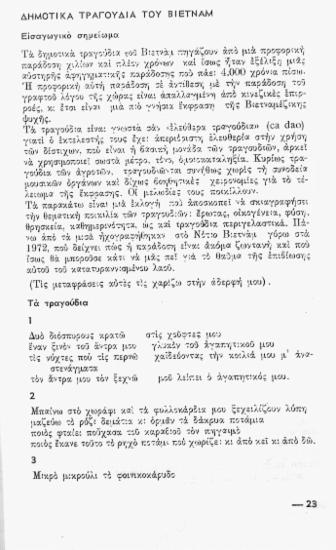 ΔΗΜΟΤΙΚΑ ΤΡΑΓΟΥΔΙΑ ΤΟΥ ΒΙΕΤΝΑΜ
Εἰσαγωγικό σημείωμα
Τά δημοτικά τραγούδια τοῦ Βιετνάμ πηγάζουν ἀπό μιά προφορική
παράδοση χιλίων καί πλέον χρόνων καί ἴσως ἦταν ἐξέλιξη μιᾶς
αὐστηρῆς ἀφηγηματικῆς παράδοσης πού πάει 4.000 χρόνια πίσω.
Ἡ προφορική αὐτή παράδοση σέ ἀντίθεση μέ τήν παράδοση τοῦ
γραφτοῦ λόγου τῆς χώρας εἶναι ἀπαλλαγμένη ἀπό κινεζικές ἐπιρ-
ροές, κι ἔτσι εἶναι μιά πιό γνήσια ἔκφραση τῆς Βιετναμέζικης
ψυχῆς.
Τά τραγούδια εἶναι γνωστά σάν «ἐλεύθερα τραγούδια» (ca dao)
γιατί ὁ ἐκτελεστής τους ἔχει ἀπεριόριστη ἐλευθερία στήν χρήση
τῶν δίστιχων, πού εἶναι ἡ βασική μονάδα τῶν τραγουδιῶν, ἀρκεῖ
νά χρησιμοποιεῖ σωστά μέτρο, τόνο, ὁμοιοκαταληξία. Κυρίως τρα-
γούδια τῶν ἀγροτῶν, τραγουδιῶνται συνήθως χωρίς τή συνοδεία
μουσικῶν ὀργάνων καί δίχως βοηθητικές χειρονομίες γιά τό τέ-
λειωμα τῆς ἔκφρασης. Οἱ μελωδίες τους ποικίλλουν.
Τά παρακάτω εἶναι μιά ἐκλογή πού ἀποσκοπεῖ νά σκιαγραφήσει
τήν θεματική ποικιλία τῶν τραγουδιῶν: ἔρωτας, οἰκογένεια, φύση,
θρησκεία, καθημερινότητα, ὡς καί τραγούδια περιγελαστικά. Πά-
νω ἀπό τά μισά ἠχογραφήθηκαν στό Νότιο Βιετνάμ γύρω στά
1972, πού δείχνει πώς ἡ παράδοση εἶναι ἀκόμα ζωντανή καί πού
ἴσως θά μποροῦσε κάτι νά μᾶς πεῖ γιά τό θαῦμα τῆς ἐπιβίωσης
αὐτοῦ τοῦ κατατυραννισμένου λαοῦ.
(Τίς μεταφράσεις αὐτές τίς χαρίζω στήν ἀδερφή μου).
Τά τραγούδια
1
Δυό διόσπυρους κρατῶ στίς χοῦφτες μου
ἕναν ξινόν τοῦ ἄντρα μου γλυκόν τοῦ ἀγαπητικοῦ μου
τίς νύχτες πού τίς περνῶ χαϊδεύοντας τήν κοιλιά μου μ' ἀνα-
στενάγματα
τόν ἄντρα μου τόν ξεχνῶ μοῦ λείπει ὁ ἀγαπητικός μου.
2
Μπαίνω στό χωράφι καί τά φυλλοκάρδια μου ξεχειλίζουν λύπη
μαζεύω τό ρύζι δεμάτια κι ὁρμᾶν τά δάκρυα ποτάμια
ποιός φταίει πούχασα τοῦ καραβιοῦ τόν πηγαιμό
ποιός ἔκανε τοῦτο τό ρηχό ποτάμι πού χωρίζει κι ἀπό κεῖ κι ἀπό δῶ.
3
Μικρό μικρούλι τό φοινικοκάρυδο
— 23